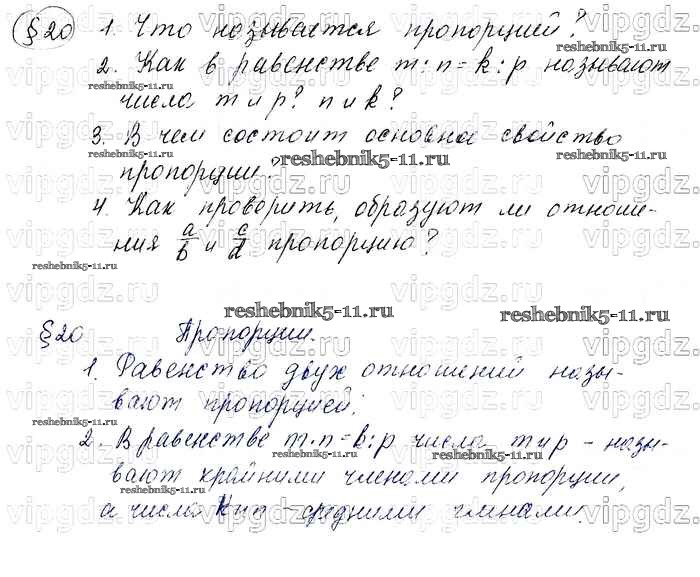 §20 1. Что называется пропорцией?
2. Как в равенстве m:n=k:p называют
числа m и p? n и k?
3. В чем состоит основное свойство
пропорции?
4. Как проверить, образуют ли отноше-
ния a/b и c/d пропорцию?
§20 Пропорции.
1. Равенство двух отношений назы-
вают пропорцией.
2. В равенстве m:n=k:p числа m и p - назы-
вают крайними членами пропорции,
а числа k и n - средними членами.
vipgdz.ru
reshebnik5-11.ru